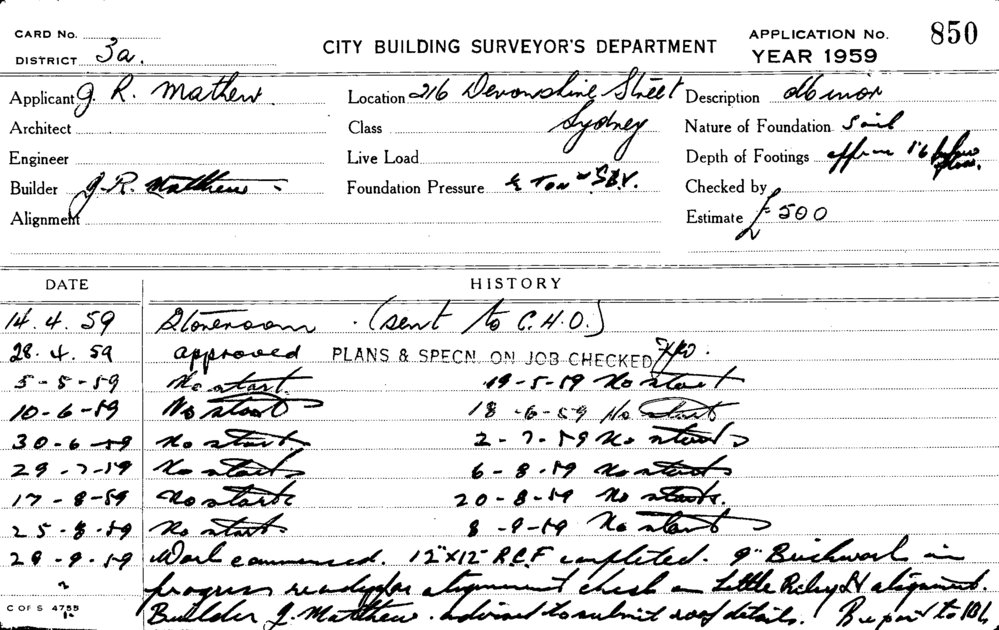 CARD No.
DISTRICT 3a.
CITY BUILDING SURVEYOR'S DEPARTMENT
APPLICATION No. 850
YEAR 1959
Applicant J. R. Mathew. Location 216 Devonshire Street Description Minor
Architect Class Sydney Nature of Foundation Soil
Engineer Live Load Depth of Footings approx 1'6 below
Builder J. R. Matthew - Foundation Pressure Ton S.B.V. Checked by
Alignment Estimate £500
DATE HISTORY
14. 4. 59 Storeroom . (sent to C.H.O.)
28. 4. 59 approved PLANS & SPECN. ON JOB CHECKED
5-5-59 No start. 19-5-59 No start
10-6-59 No start 18-6-59 No start
30-6-59 No start 2-7-59 No start
29-7-59 No start 6-8-59 No start
17-8-59 No start 20-8-59 No start.
25-8-59 No start 8-9-59 No start
29-9-59 Work commenced. 12"x12" R.C.F completed. 9" Brickwork in
progress ready for alignment check on Little Riley St alignment.
C OF S 4755 Builder J. Matthew advised to submit roof details. Report to